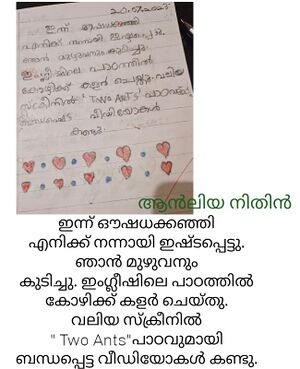 20.07.2023
ഇന്ന് ഔഷധക്കഞ്ഞി
എനിക്ക് നന്നായി ഇഷ്ടപ്പെട്ടു.
ഞാൻ മുഴുവനും കുടിച്ചു.
ഇംഗ്ലീഷിലെ പാഠത്തിൽ
കോഴിക്ക് കളർ ചെയ്തു. വലിയ
സ്ക്രീനിൽ "Two AnTs" പാഠവു
ബന്ധപ്പെട്ട വീഡിയോകൾ
കണ്ടു.
ആൻലിയ നിതിൻ
ഇന്ന് ഔഷധക്കഞ്ഞി
എനിക്ക് നന്നായി ഇഷ്ടപ്പെട്ടു.
ഞാൻ മുഴുവനും
കുടിച്ചു. ഇംഗ്ലീഷിലെ പാഠത്തിൽ
കോഴിക്ക് കളർ ചെയ്തു.
വലിയ സ്ക്രീനിൽ
" Two Ants"പാഠവുമായി
ബന്ധപ്പെട്ട വീഡിയോകൾ കണ്ടു.